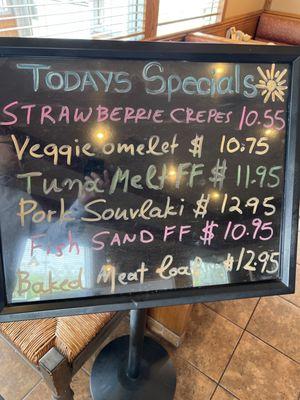 TODAYS Specials
STRAWBERRIE CREPES 10.55
Veggie omelet $ 10.75
Tuna Melt FF $ 11.95
Pork Souvlaki $ 12.95
Fish SAND FF $ 10.95
Baked Meat loaf $12.95